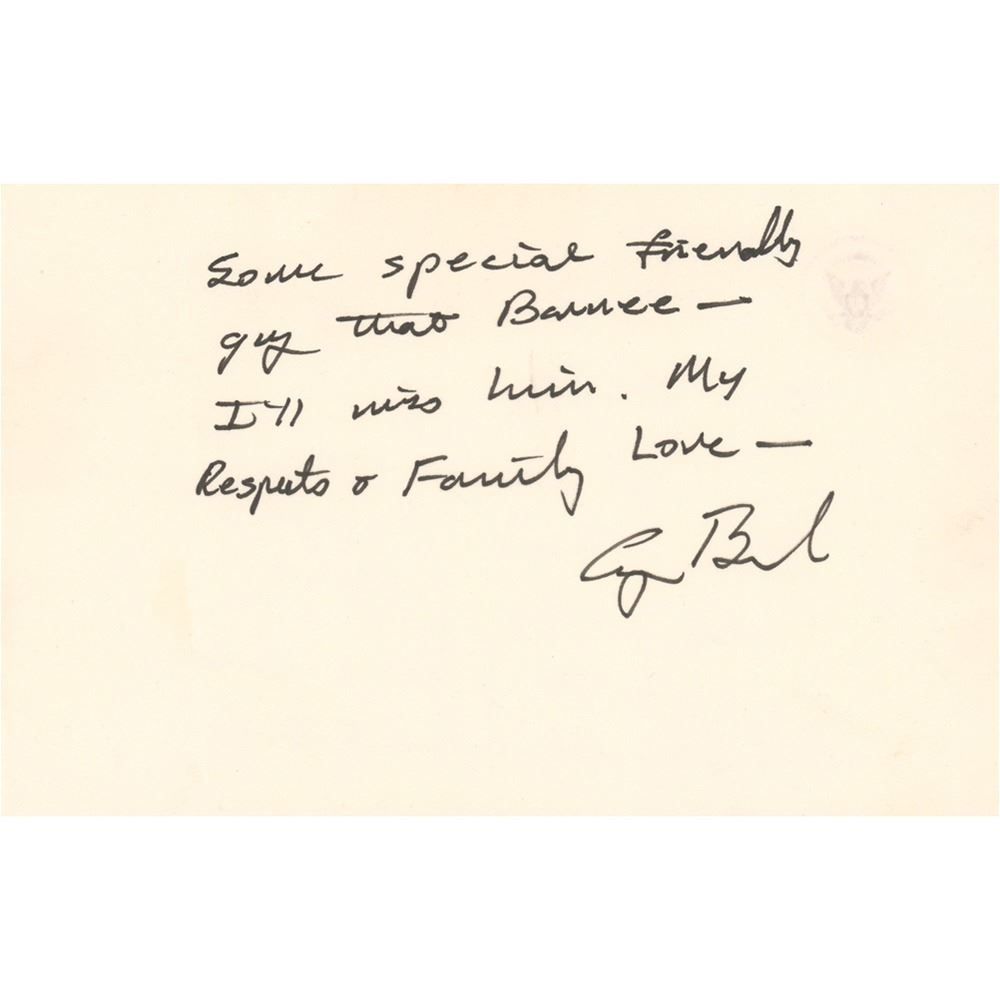 Some special friendly
guy that Barnee —
I'll miss him. My
Respects & Family Love —
Gg Bush